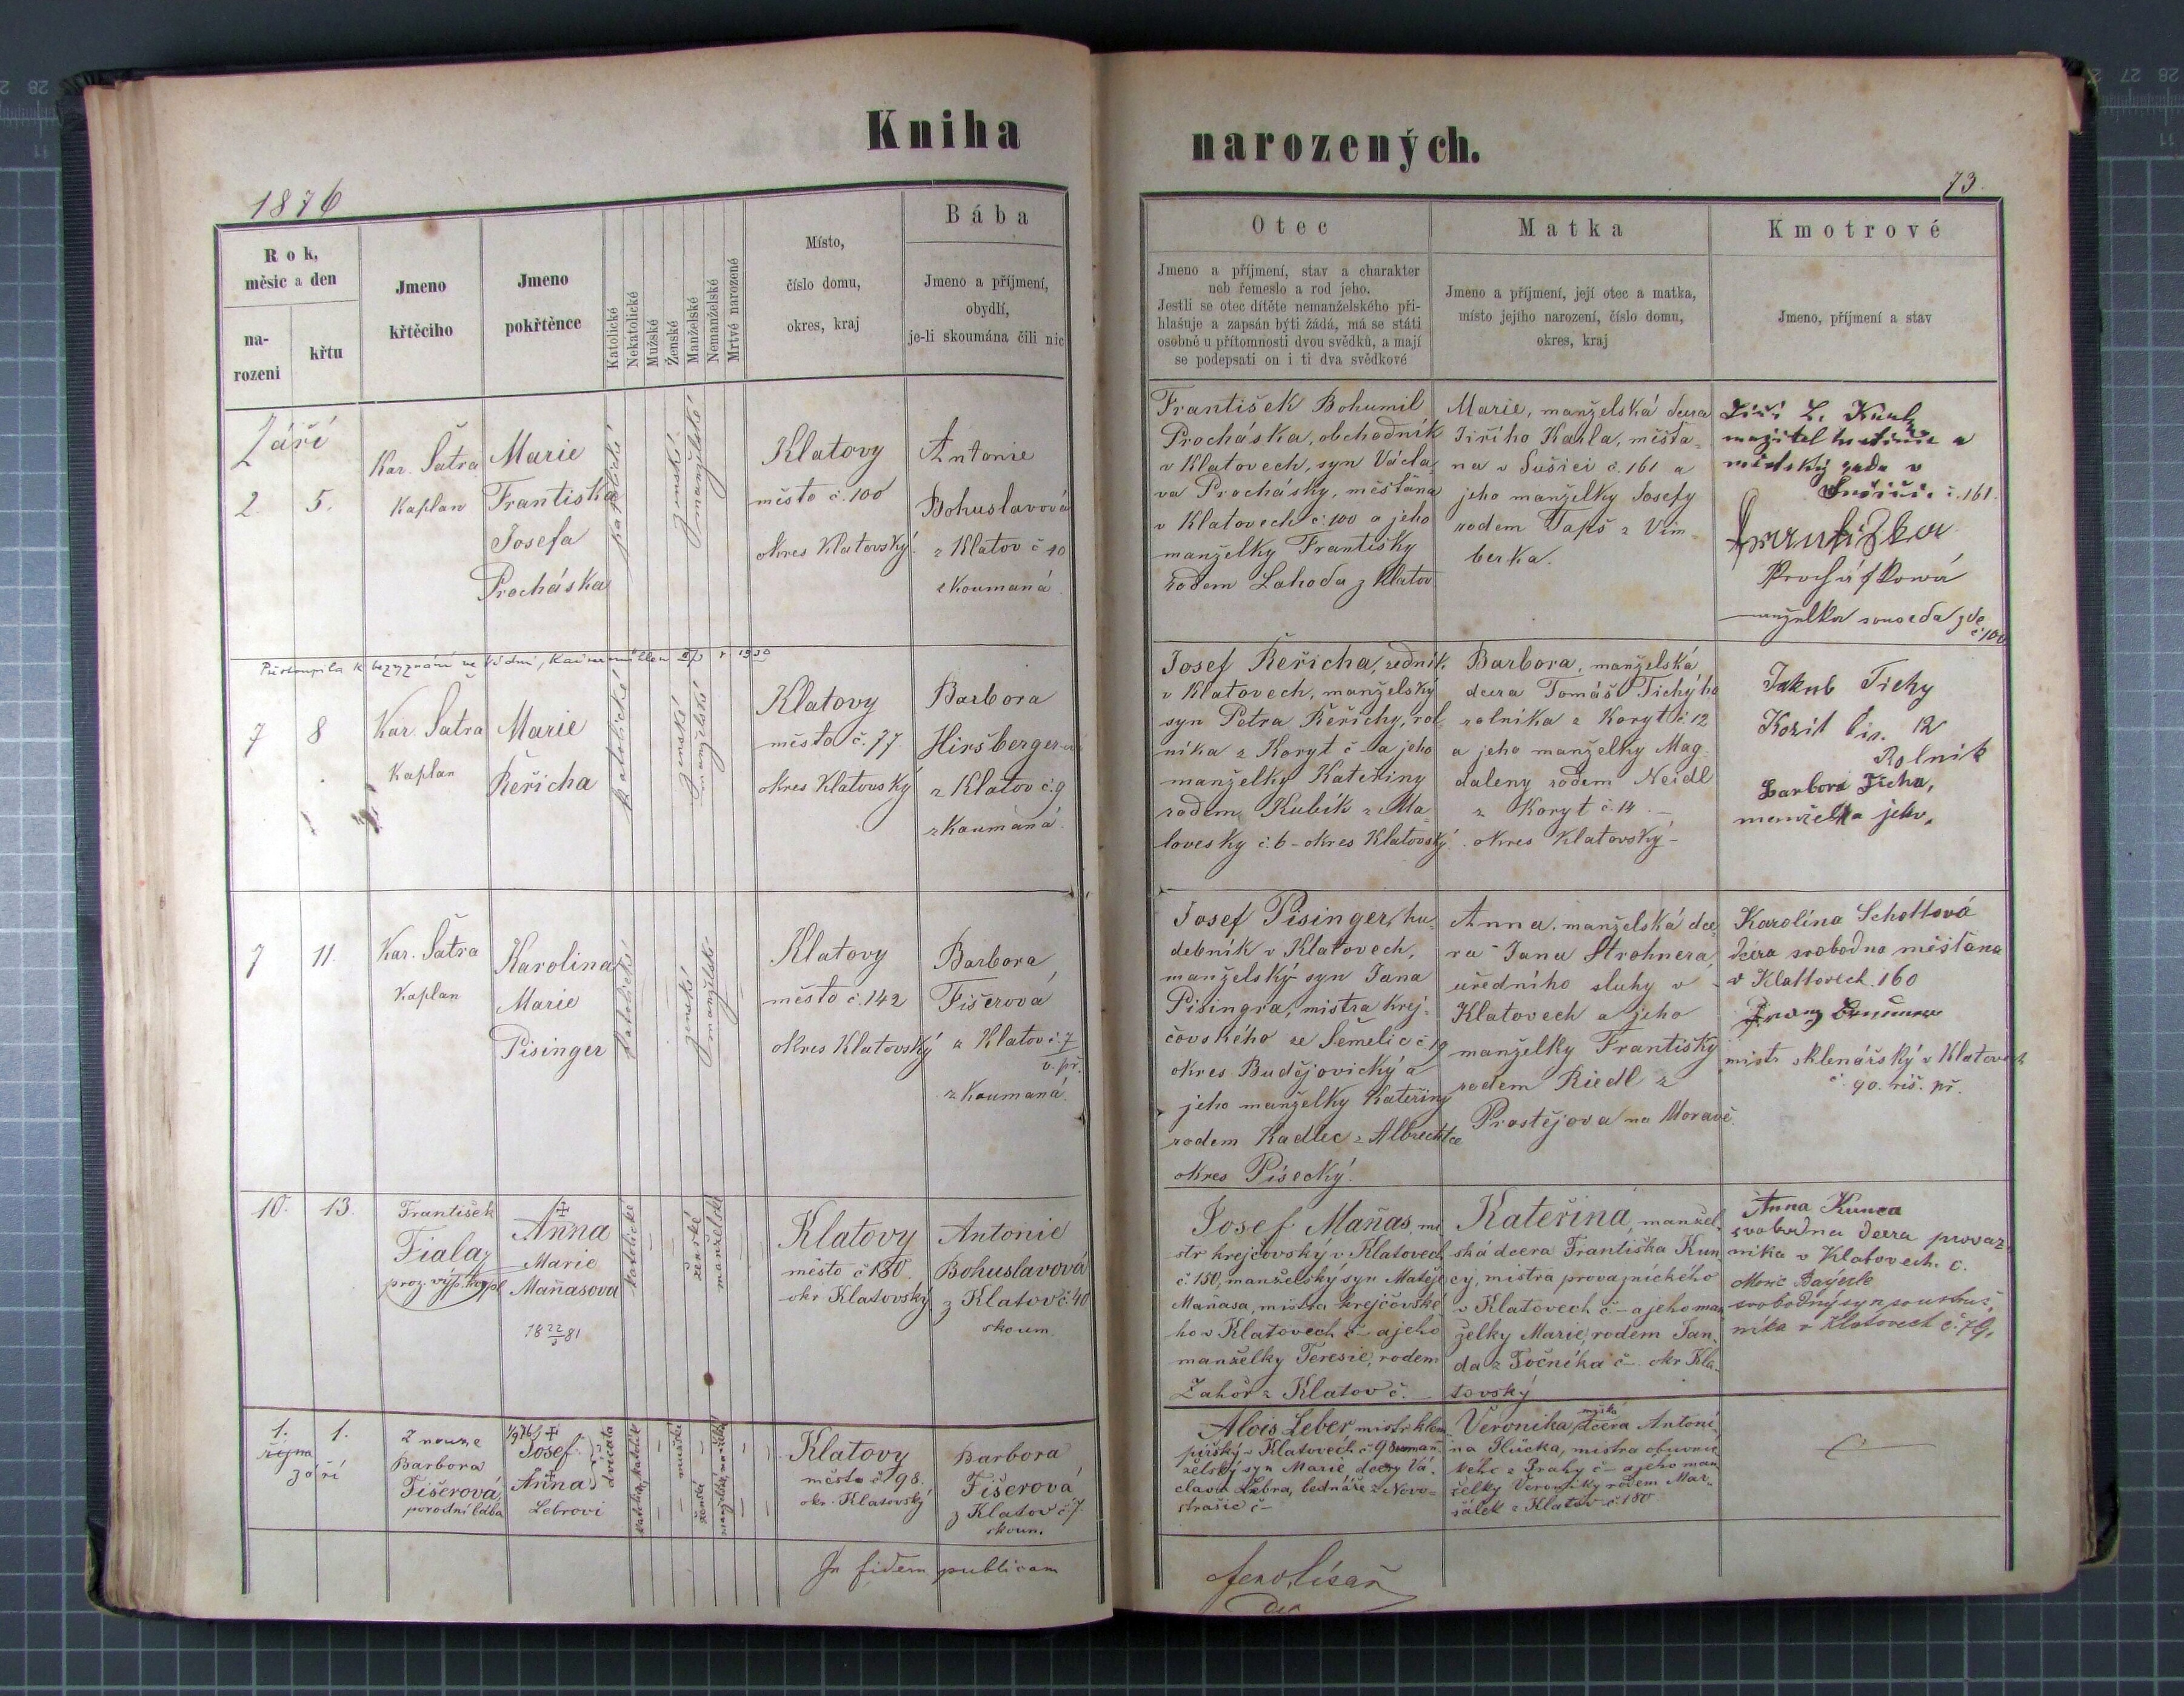 Kniha
narozených.
1876
73.
Rok,
měsíc a den
na-
rozeni
křtu
Jmeno
křtěcího
Jmeno
pokřtěnce
Katolické
Nekatolické
Mužské
Ženské
Manželské
Nemanželské
Mrtvé narozené
Místo,
číslo domu,
okres, kraj
Bába
Jmeno a příjmení,
obydlí,
je-li skoumána čili nic
Otec
Jmeno a příjmení, stav a charakter
neb řemeslo a rod jeho.
Jestli se otec dítěte nemanželského při-
hlašuje a zapsán býti žádá, má se státi
osobně u přítomnosti dvou svědků, a mají
se podepsati on i ti dva svědkové
Matka
Jmeno a příjmení, její otec a matka,
místo jejího narození, číslo domu,
okres, kraj
Kmotrové
Jmeno, příjmení a stav
Září
2.
5.
Kar. Šatra
Kaplan
Marie
Františka
Josefa
Procháska
katolické
ženské
manželské
Klatovy
město č. 100
okres Klatovský
Antonie
Bohuslavová
z Klatov č 40
skoumaná
František Bohumil
Procháska, obchodník
v Klatovech, syn Václa-
va Prochásky, měštana
v Klatovech č. 100 a jeho
manželky Františky
rodem Lahoda z Klatov
Marie, manželská dcera
Jiřího Kahla, měšťa-
na v Sušici č. 161 a
jeho manželky Josefy
rodem Tapš z Vim-
berka.
majitel hostince a
městský rada v
Sušici č. 161.
Františka
Procháskowá
manželka souseda zde
č. 100
Přistoupila k bezvyznání ve r 1930
7
8
Kar. Šatra
Kaplan
Marie
Řeřicha
katolické
ženské
manželské
Klatovy
město č. 77.
okres Klatovský
Barbora
Hiršbergerová
z Klatov č. 9
zkoumaná.
Josef Řeřicha, zedník
v Klatovech, manželský
syn Petra Řeřichy, rol-
níka z Koryt č – a jeho
manželky Kateřiny
rodem Kubík z Ma-
lovesky č. 6 – okres Klatovský
Barbora, manželská
dcera Tomáše Tichýho
rolníka z Koryt č. 12
a jeho manželky Mag-
daleny rodem Neidl
z Koryt č. 14 –
okres Klatovský –
Jakub Tichy
Korit čis. 12
Rolnik
Barbora Ticha,
manželka jeho.
7
11.
Kar. Šatra
Kaplan
Karolina
Marie
Pisinger
katolické
ženské
manželské
Klatovy
město č. 142
okres Klatovský
Barbora
Fišerová
z Klatov č. 7
v. př.
zkoumaná.
Josef Pisinger, hu-
debník v Klatovech,
manželský syn Jana
Pisingra, mistra krej-
čovského ze Semelic č. 19
okres Budějovický a
jeho manželky Kateřiny
rodem Kadlec z Albrechtce
okres Písecký.
Anna, manželská dce-
ra Jana Strohnera,
uředního sluhy v
Klatovech a jeho
manželky Františky
rodem Riedl z
Prostějova na Moravě.
Karolína Schottová
dcera svobodna měšťana
v Klattovech. 160
mistr sklenářský v Klatovech
č. 90. říš. př.
10.
13.
František
Fiala
proz. výp. kapl
Anna
Marie
Maňasova
18 22/3 81
katolické
ženské
manželské
Klatovy
město č 150
okr Klatovský
Antonie
Bohuslavová
z Klatov č 40
skoum
Josef Maňas, mi-
str krejčovský v Klatovech
č. 150, manželský syn Matěje
Maňasa, mistra krejčovské-
ho v Klatovech č – a jeho
manželky Teresie, rodem
Zahoř z Klatov č. –
Kateřina, manžel-
ská dcera Františka Kun-
cy, mistra provaznického
v Klatovech č – a jeho man-
želky Marie, rodem Jan-
da z Točníka č – okr Kla-
tovský
Anna Kunca
svobodna dcera provaz-
nika v Klatovech. č.
Moric Bayerle
svobodný syn soustruž-
níka v Klatovech č. 79.
1.
října
září
1.
Z nouze
Barbora
Fišerová,
porodní bába
Josef
Anna
dvojčata
Lebrovi
mužské
ženské
Klatovy
město č 198.
okr. Klatovský
Barbora
Fišerová
z Klatov č 7.
skoum.
Alois Leber, mistr klem-
pířský v Klatovech č 98 neman-
želský syn Marie dcery Vá-
clava Lebra, bednáře z Novo-
strašic č –
Veronika, dcera Antoní-
na Hlucka, mistra obuvnic-
kého z Prahy č – a jeho man-
želky Veroniky rodem Mar-
šálek z Klatov č. 180
In fidem publicam